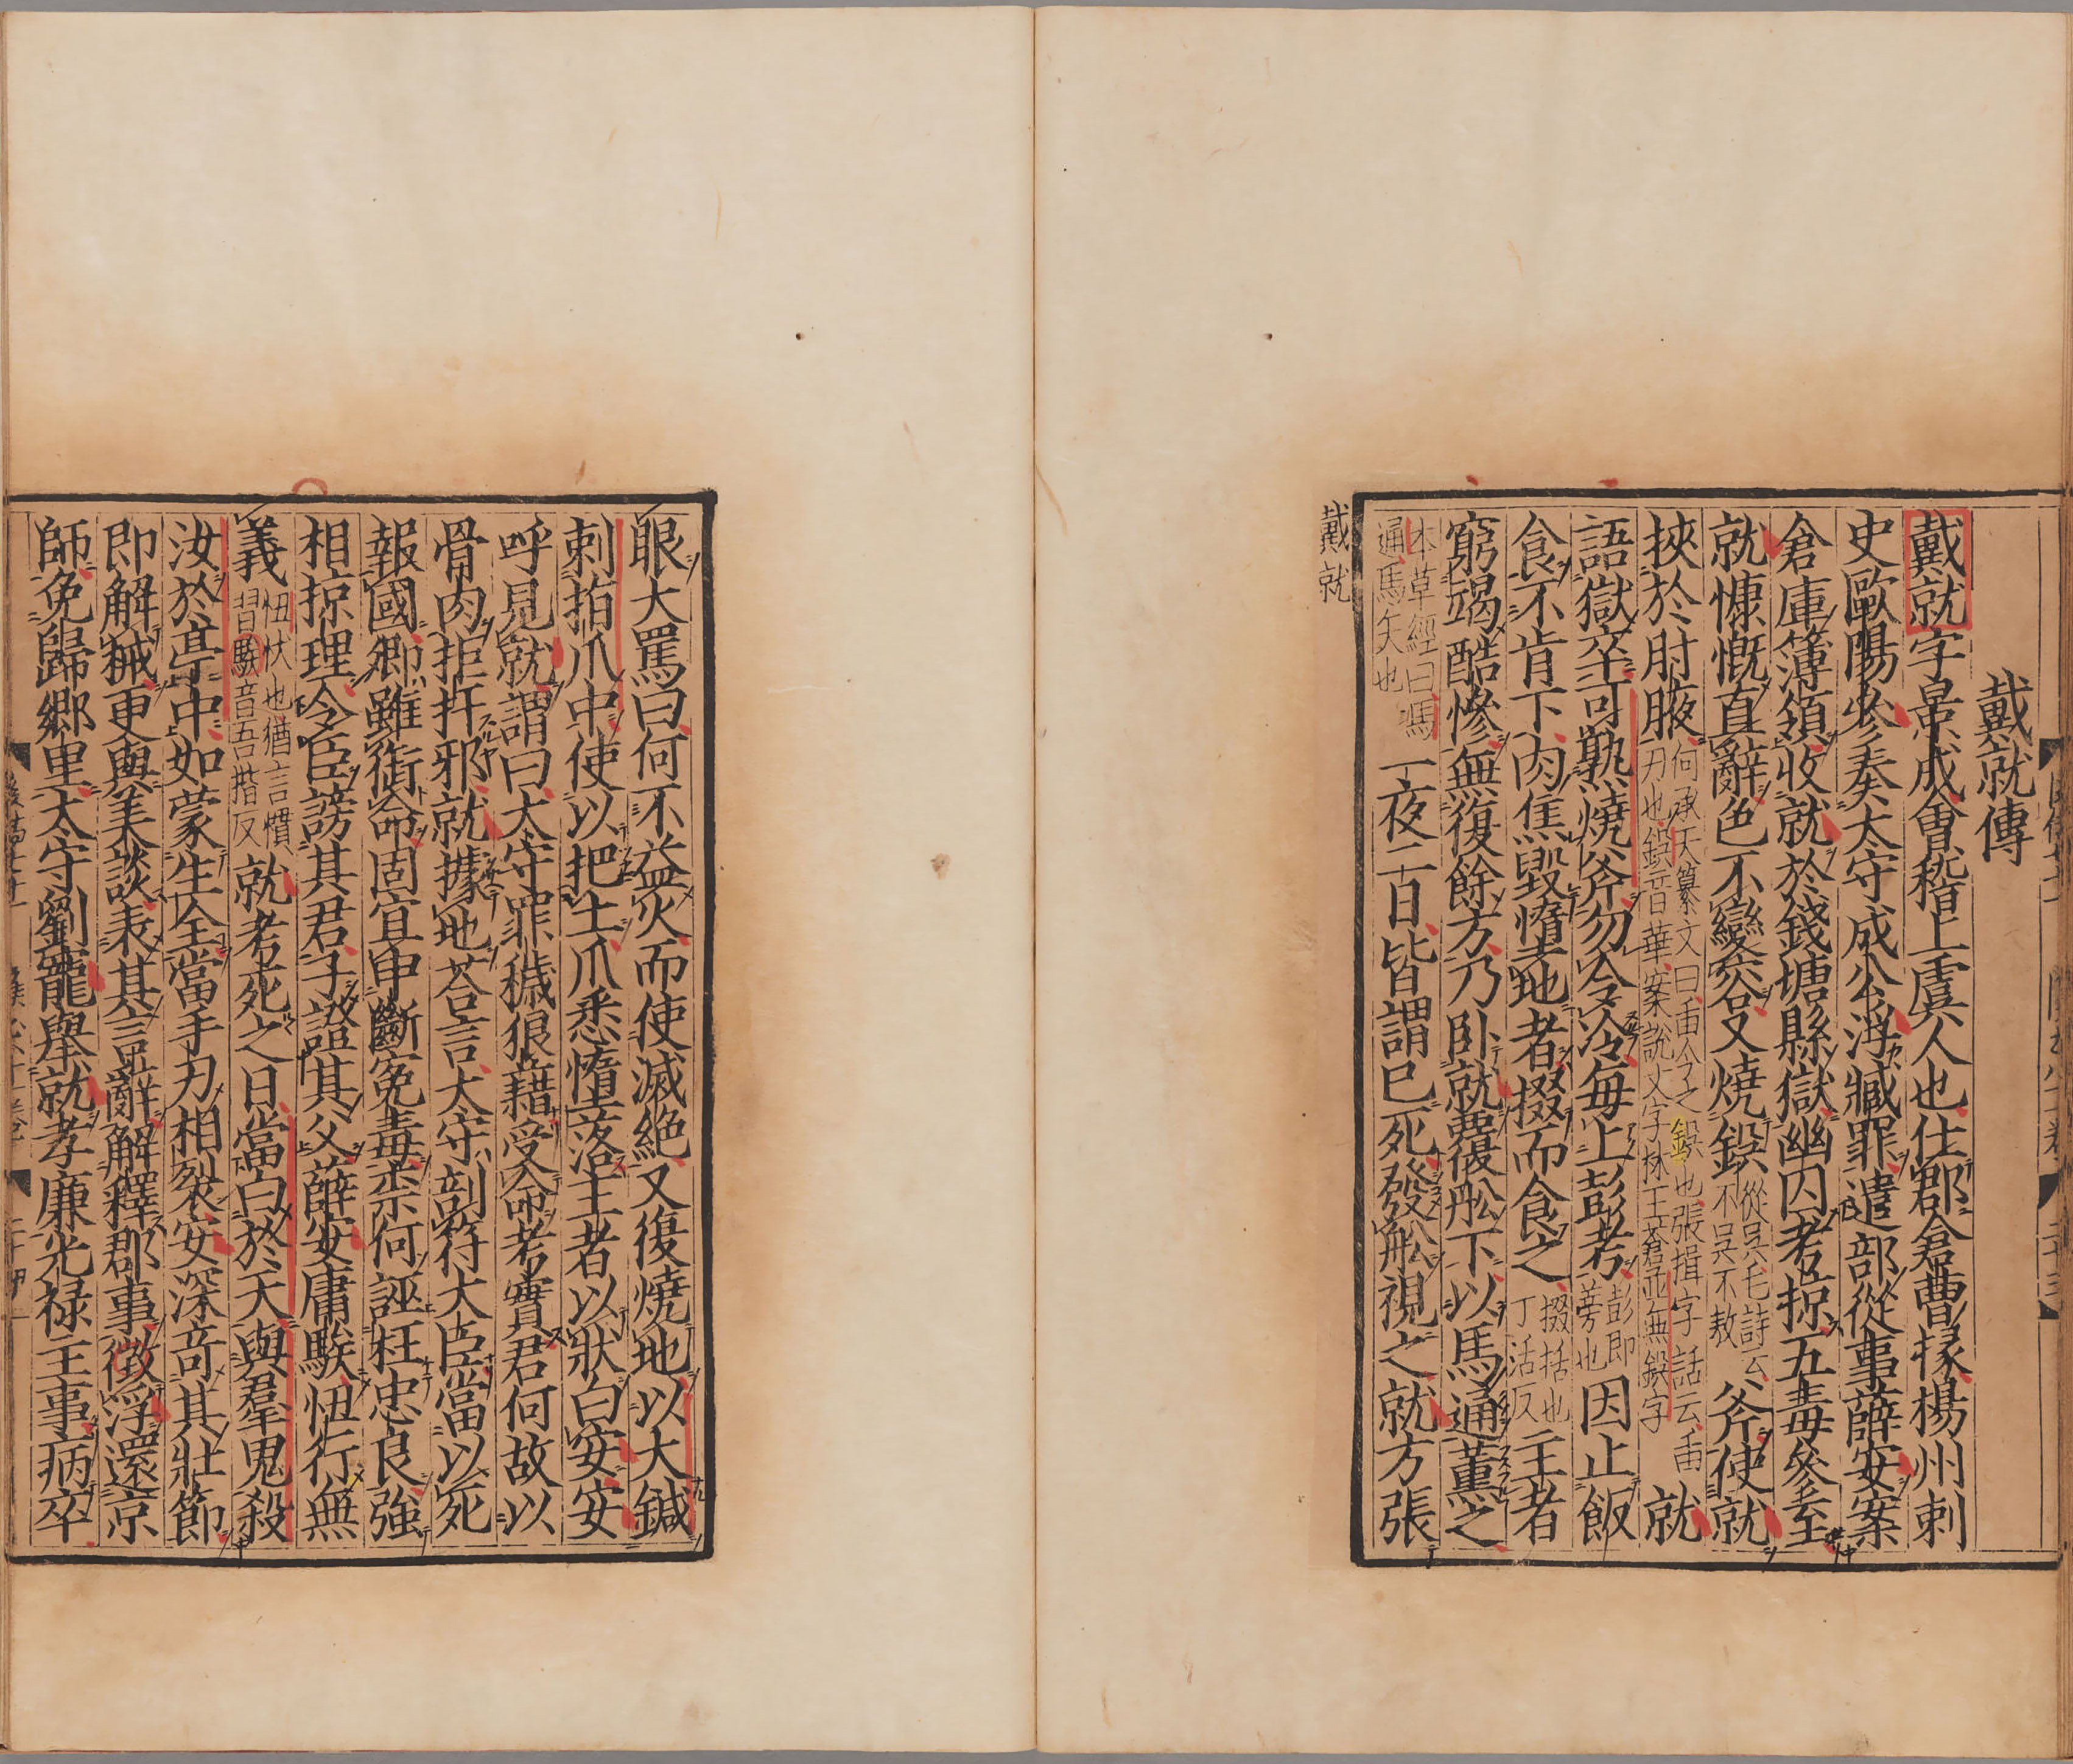 戴就傳
戴就字景成會稽上虞人也仕郡倉曹掾楊州刺
史歐陽參奏太守成公浮臧罪遣部從事薛安案
倉庫簿領收就於錢塘縣獄幽囚考掠五毒參至
就慷慨直辭色不變容又燒鋘從吳毛詩云不吳不敖斧使就
挾於肘腋何承天纂文曰臿今之鋘也張揖字詁云臿刃也鋘音華案說文字林三蒼並無鋘字就
語獄卒可熟燒斧勿令冷每上彭考彭即蒡也因止飯
食不肯下肉焦毀墮地者掇而食之掇拾也丁活反主者
窮竭酷慘無復餘方乃臥就覆舩下以馬通薰之
本草經曰馬通馬矢也一夜二日皆謂已死發舩視之就方張
戴就
眼大罵曰何不益火而使滅絶又復燒地以大鍼
刺指爪中使以把土爪悉墮落主者以狀白安安
呼見就謂曰太守罪穢狼藉受命考實君何故以
骨肉拒扞邪就據地荅言太守剖符大臣當以死
報國卿雖銜命固宜申斷冤毒柰何誣枉忠良強
相掠理令臣謗其君子證其父薛安庸騃忸行無
義忸忕也猶言慣習騃音吾揩反就考死之日當白於天與羣鬼殺
汝於亭中如蒙生全當手刃相裂安深奇其壯節
即解械更與美談表其言辭解釋郡事徵浮還京
師免歸鄉里太守劉寵舉就孝廉光祿主事病卒